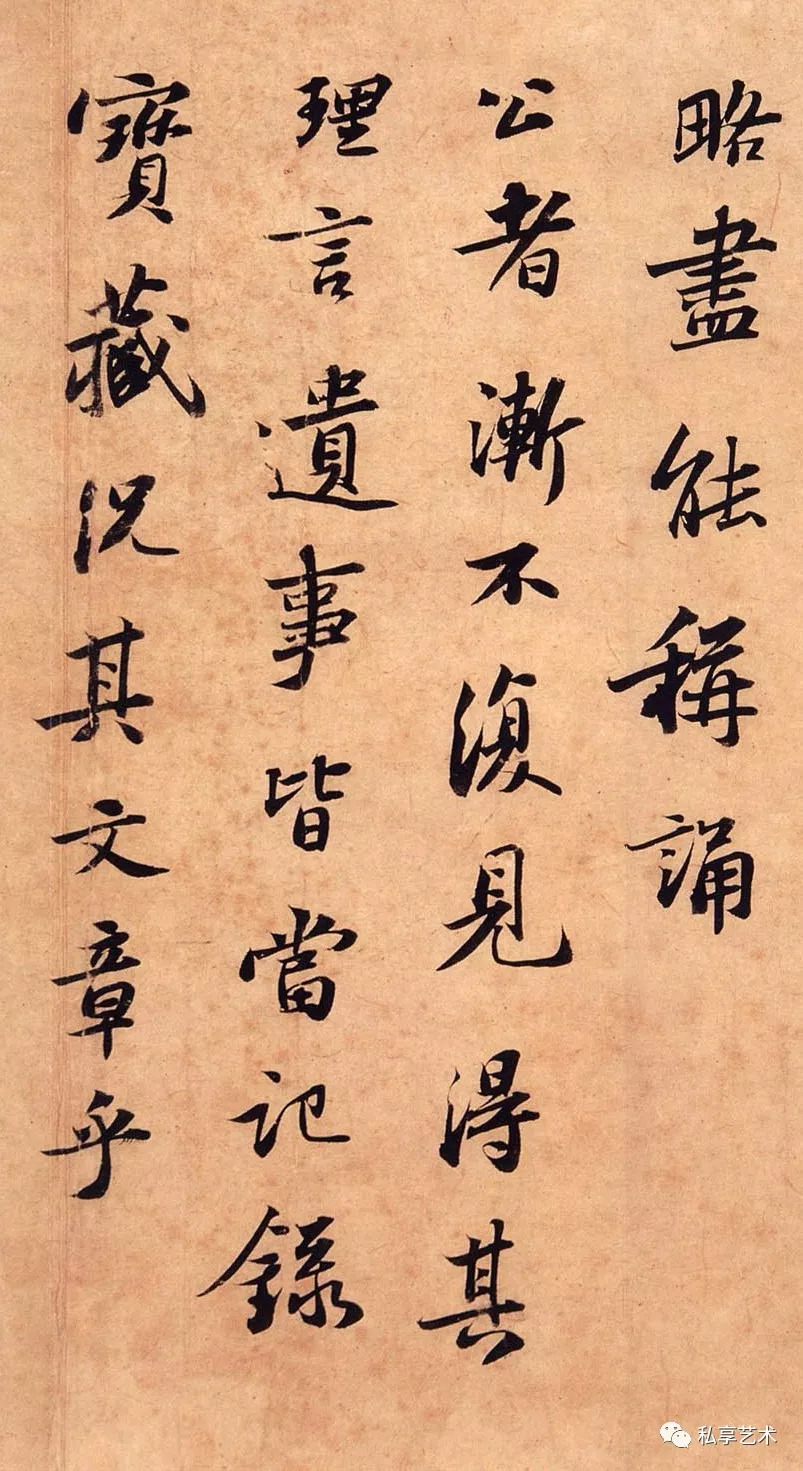 略盡能稱誦
公者漸不復見得其
理言遺事皆當記錄
寶藏況其文章乎
私享艺术